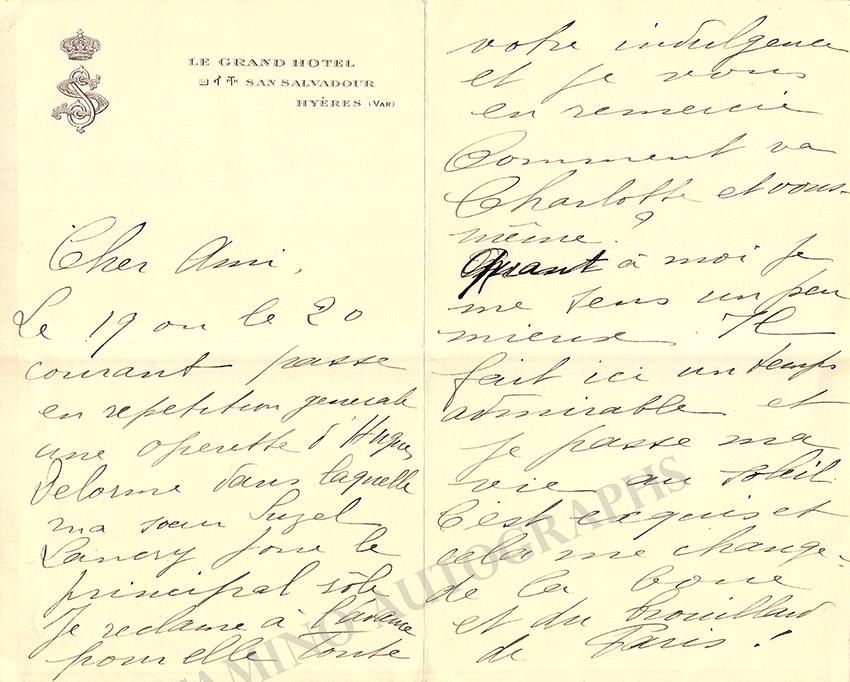 LE GRAND HOTEL
SAN SALVADOUR
HYÈRES (VAR)
Cher Ami,
Le 19 ou le 20
courant passe
en repetition generale
une operette d'Hugues
Delorme dans laquelle
ma soeur Suzel
Lancry joue le
principal rôle
Je reclame à l'avance
pour elle toute
votre indulgence
et je vous
en remercie
Comment va
Charlotte et vous-
même ?
Quant à moi je
me sens un peu
mieux. Il
fait ici un temps
admirable et
je passe ma
vie au soleil.
C'est exquis et
cela me change
de la boue
et du brouillard
de Paris !
TAMINO AUTOGRAPHS